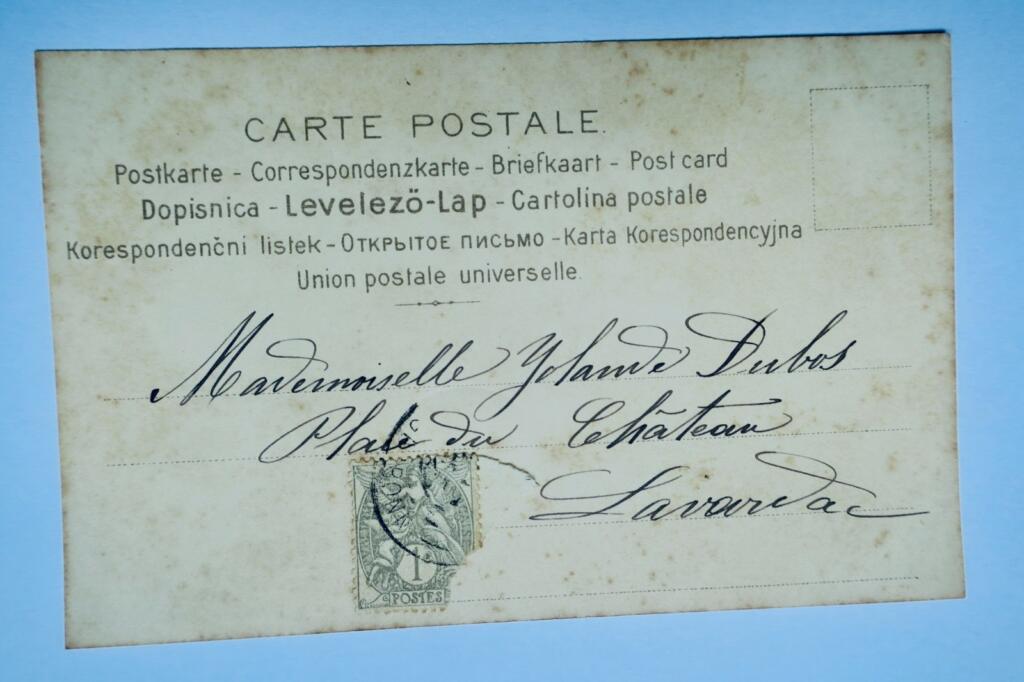 CARTE POSTALE.
Postkarte - Correspondenzkarte - Briefkaart - Post card
Dopisnica - Levelező-Lap - Cartolina postale
Korespondenčni listek - Открытое письмо - Karta Korespondencyjna
Union postale universelle.
Mademoiselle Yolande Dubos
Place du Château
Lavardac
1
POSTES